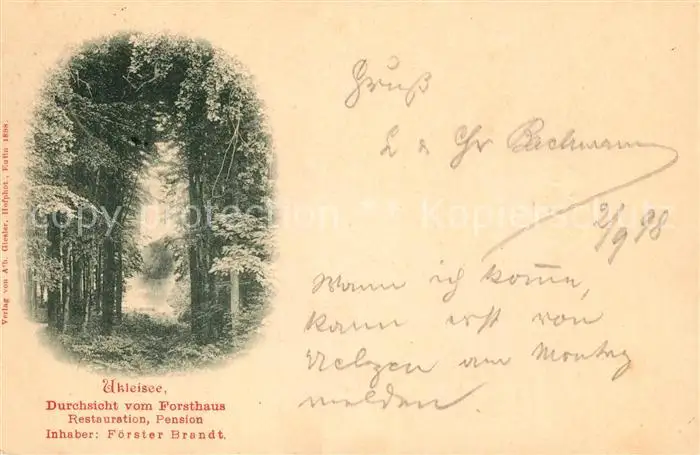 Verlag von Alb. Giesler, Hofphot., Eutin 1898.
Ukleisee,
Durchsicht vom Forsthaus
Restauration, Pension
Inhaber: Förster Brandt.
Gruß
L & Chr Bachmann
2/9 98
Wann ich kom̅e,
kann erst von
Uelzen am Montag
melden.
copy protection ** kopierschutz